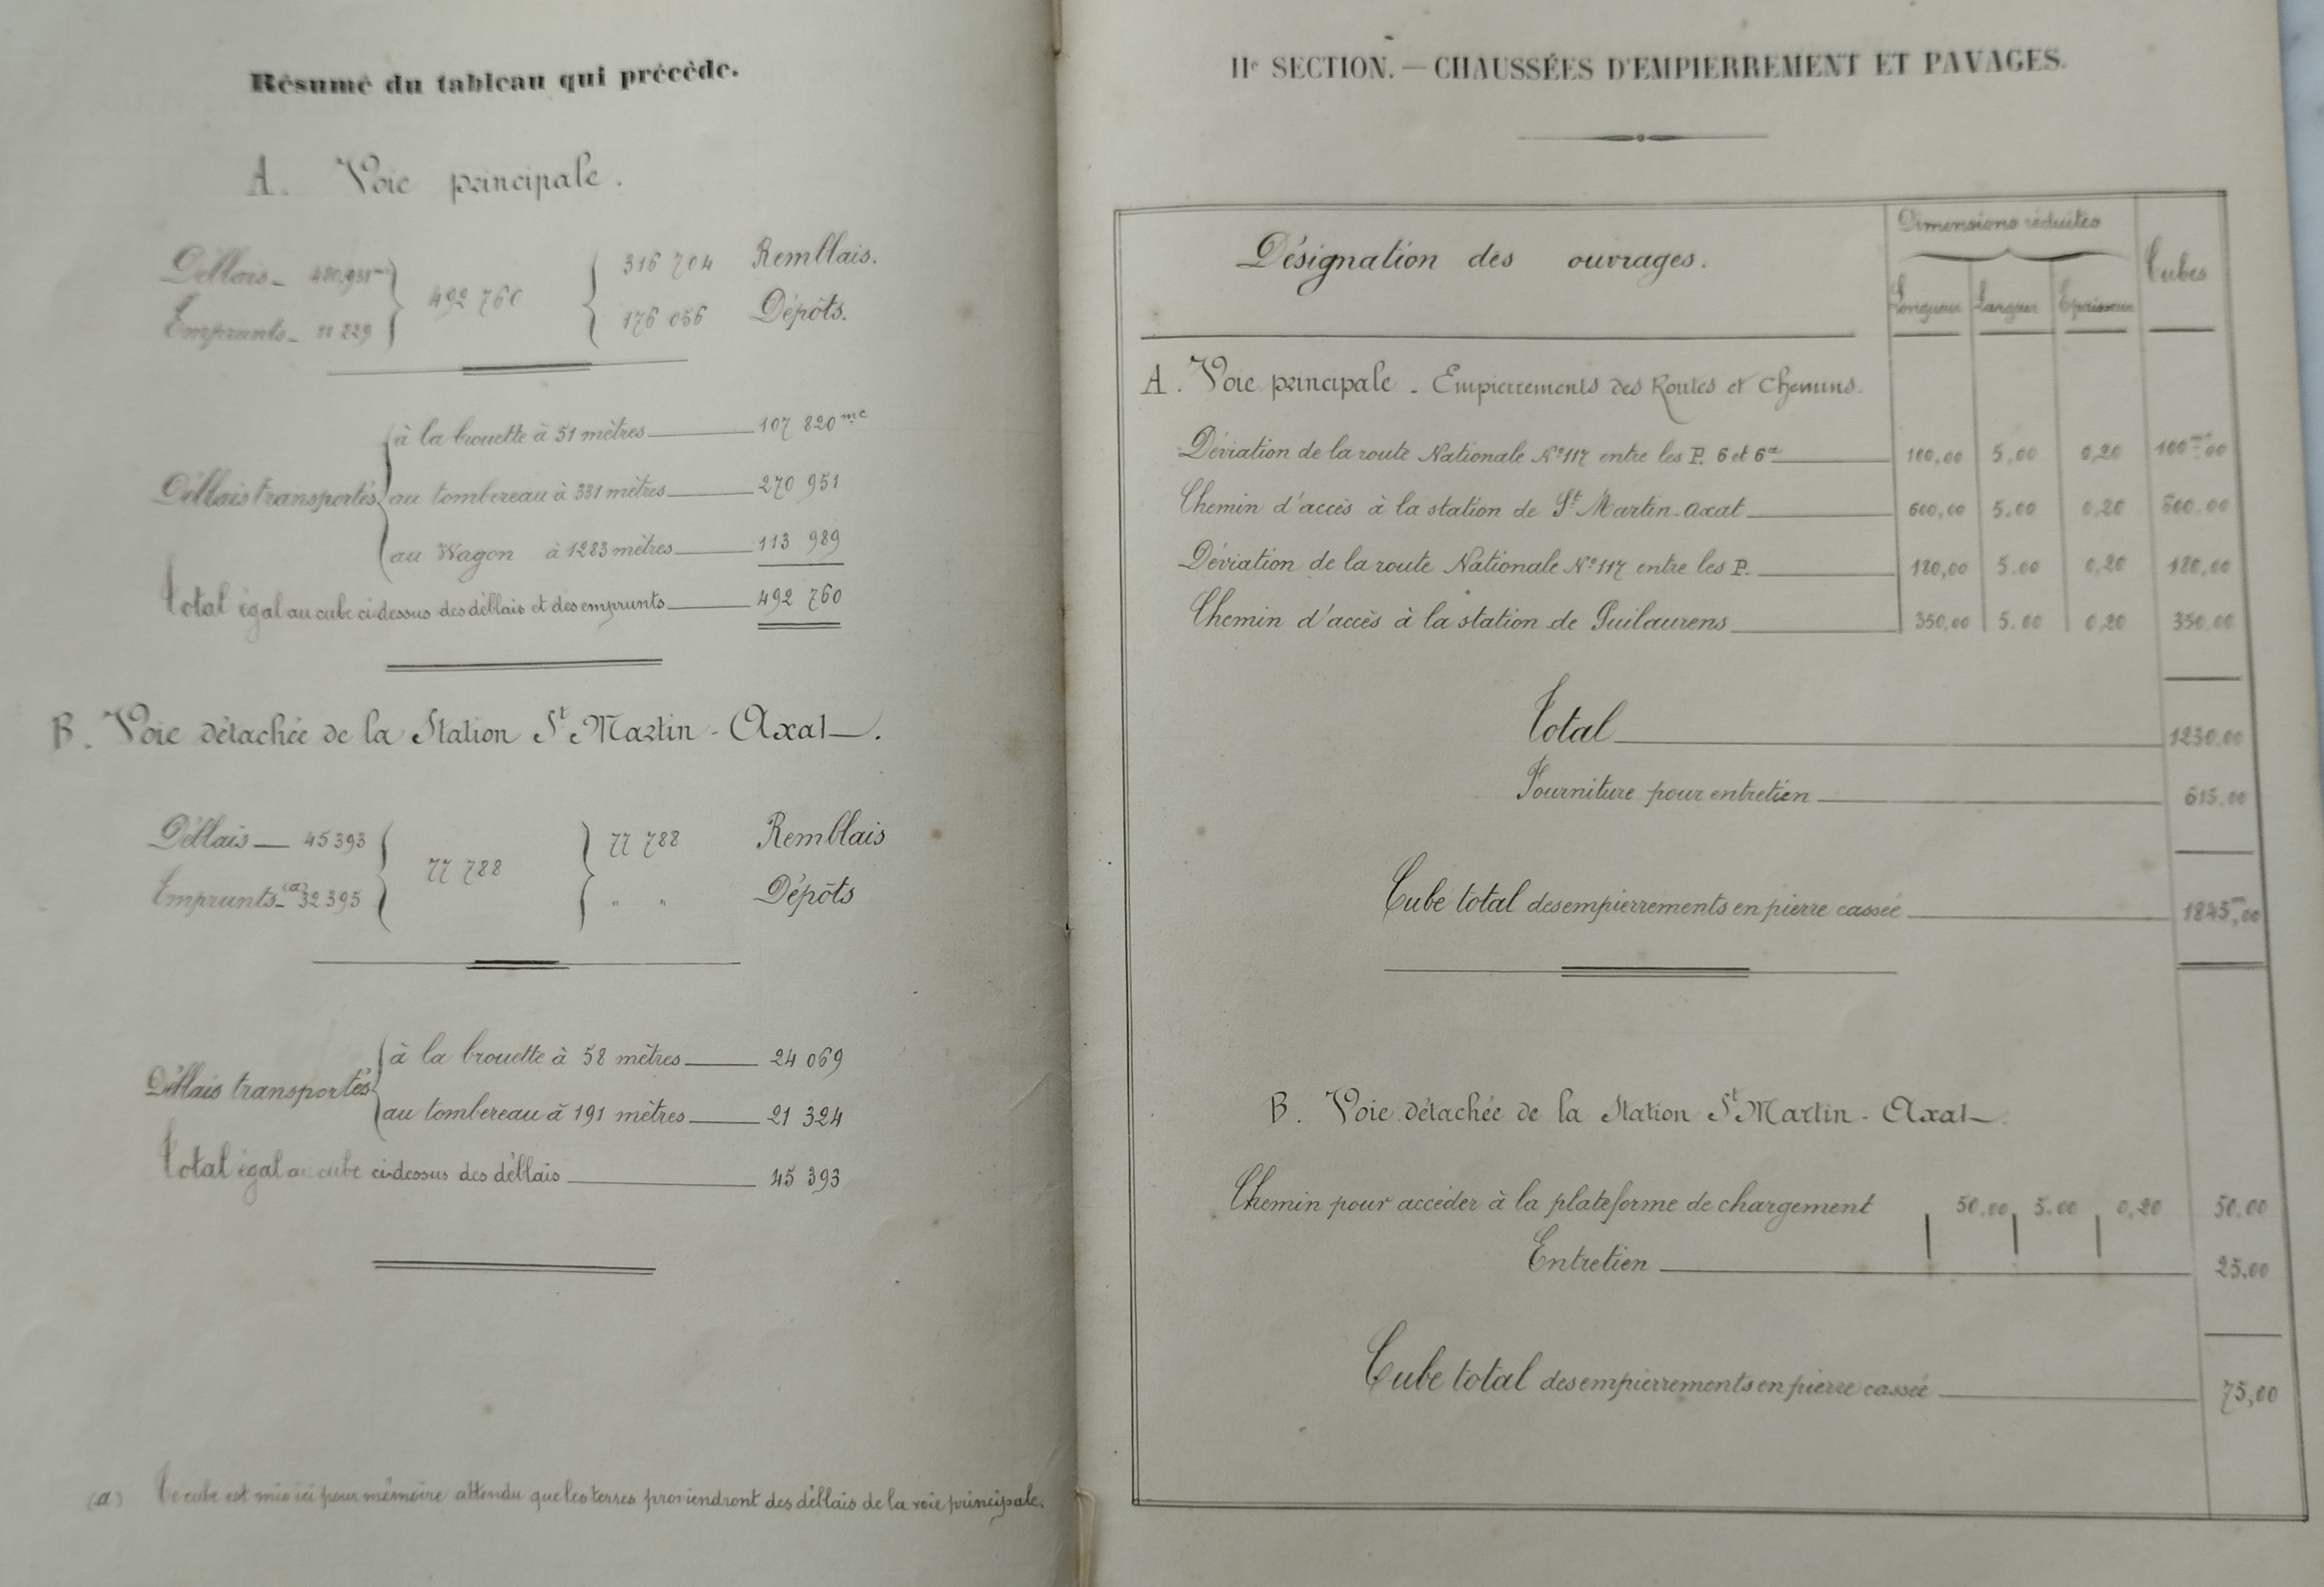 Résumé du tableau qui précède.
A. Voie principale.
Déblais_ 480.931mc 492 760 316 704 Remblais.
Emprunts_ 11 829 176 056 Dépôts.
Déblais transportés à la brouette à 51 mètres 107 820mc
au tombereau à 331 mètres 270 951
au Wagon à 1283 mètres 113 989
Total égal au cube ci-dessus des déblais et des emprunts 492 760
B. Voie détachée de la Station St Martin-Axat.
Déblais 45 393 77 788 77 788 Remblais
Emprunts_(a) 32 395 " " Dépôts
Déblais transportés à la brouette à 58 mètres 24 069
au tombereau à 191 mètres 21 324
Total égal au cube ci-dessus des déblais 45 393
(a) Ce cube est mis ici pour mémoire attendu que les terres proviendront des déblais de la voie principale.
IIe SECTION. — CHAUSSÉES D'EMPIERREMENT ET PAVAGES.
Désignation des ouvrages. Dimensions réduites Cubes
Longueur Largeur Epaisseur
A. Voie principale - Empierrements des Routes et Chemins.
Déviation de la route Nationale N°117 entre les P. 6 et 6a 100,00 5,00 0,20 100mc00
Chemin d'accès à la station de St Martin-Axat 600,00 5.00 0,20 600.00
Déviation de la route Nationale N°117 entre les P. 180,00 5.00 0,20 180,00
Chemin d'accès à la station de Puilaurens 350,00 5.00 0,20 350.00
Total 1230.00
Fourniture pour entretien 615,00
Cube total des empierrements en pierre cassée 1845m,00
B. Voie détachée de la Station St Martin-Axat.
Chemin pour accéder à la plateforme de chargement 50,00 5.00 0,20 50,00
Entretien 25,00
Cube total des empierrements en pierre cassée 75,00